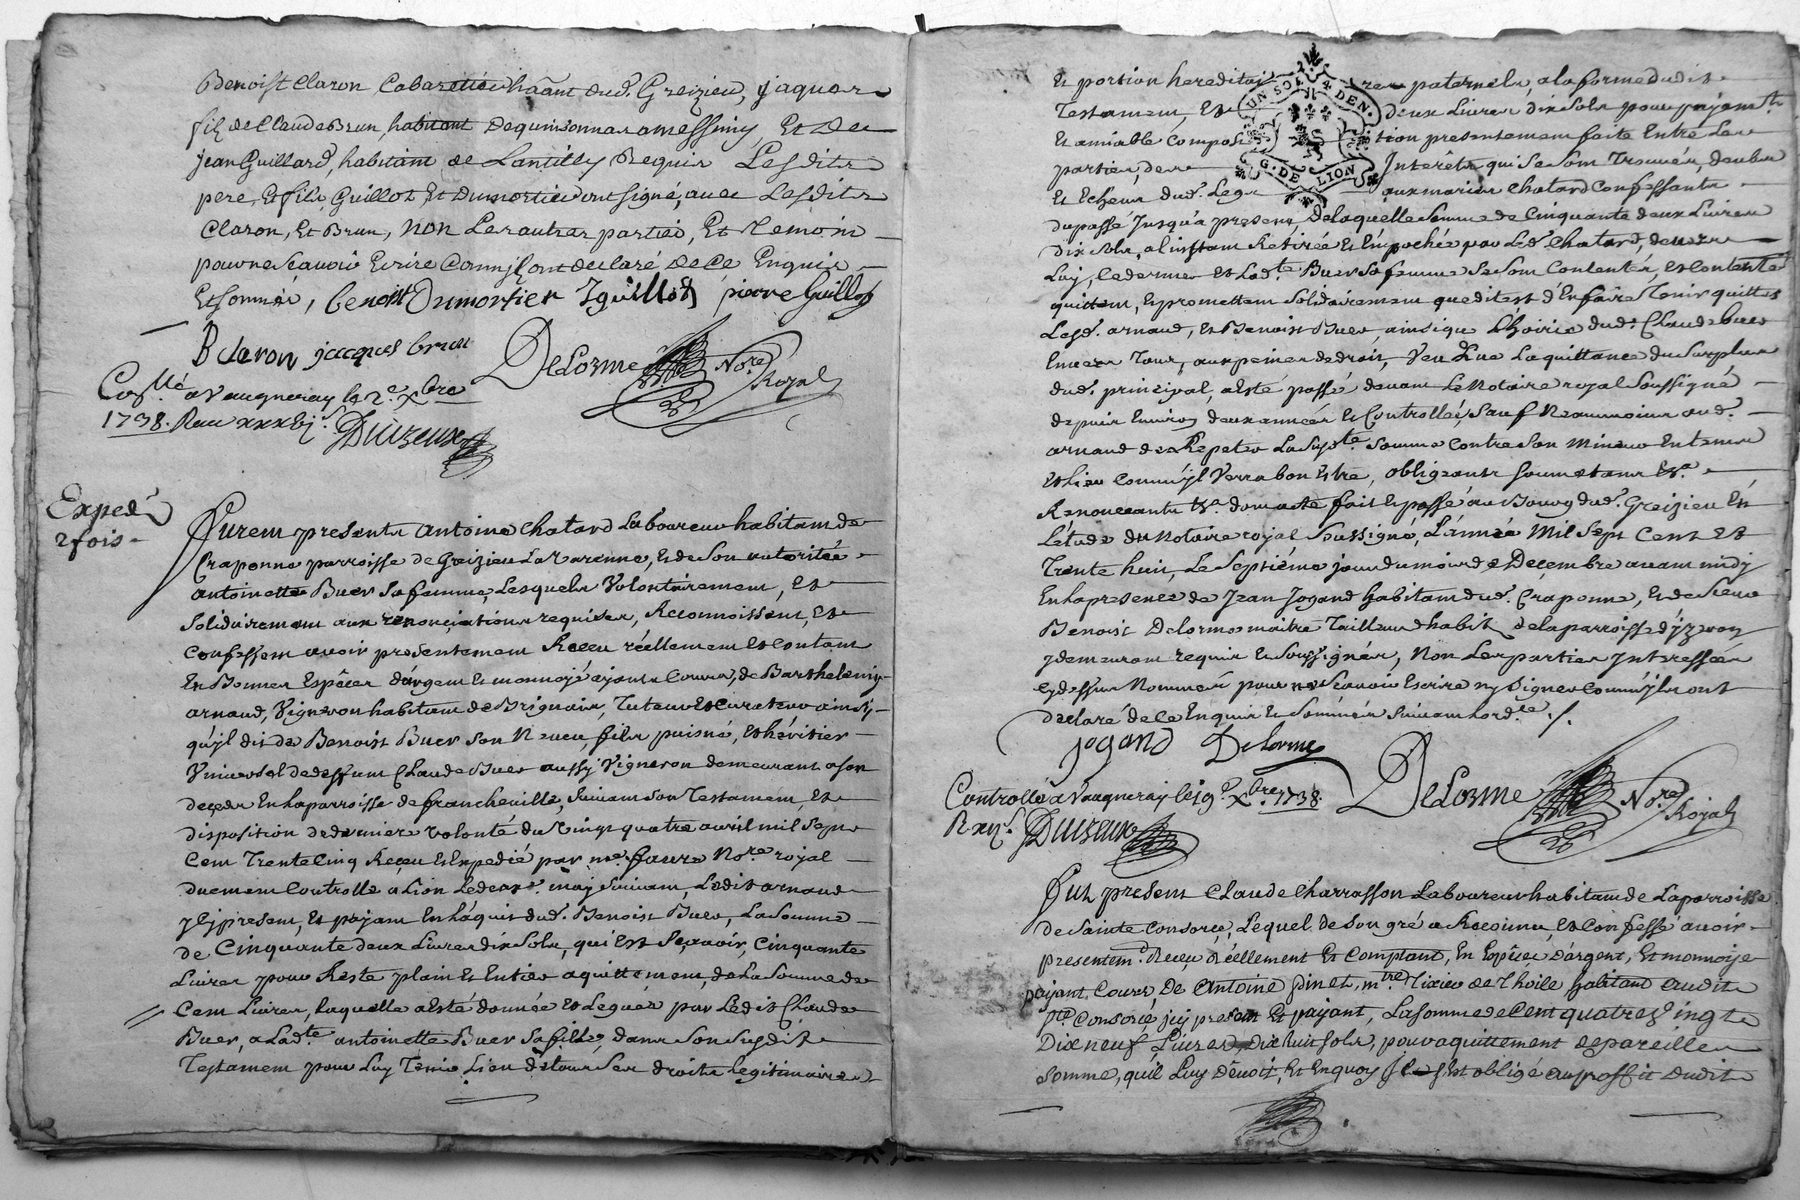 Benoist Claron Cabaretier habânt dud. Greizieu, jaques
fils de Claude Brun habitant De quinsonnas a messimy, Et De
jean Guillard, habitant de Lantilly Requis Lesdits
pere, Et fils, Guillot Et Dumortier ont signé, avec Lesdits
Claron, Et Brun, non Les autres parties, Et temoin
pour ne sçavoir Ecrire Comm'ils ont declaré de Ce Enquis
Et sommés, benoist Dumortier J guillot pierre Guillot
B claron jacques brun DeLorme No.re Royal
Con.llé a Vaugneray le 2e xbre
1738. Reçu
Exped.é
2 fois
Furent presents antoine Chatard Laboureur habitant de
Craponne parroisse de Greizieu La Varenne, Et de Son autorité
antoinette Buer Sa femme, Lesquels Volontairement, Et
Solidairement aux renonciations requises, Reconnoissent, Et
Confessent avoir presentement Reçeu réellement Et Contant
En Bonnes Espêces d'argent Et monnoye ayants Cours, de Barthelemy
arnaud, Vigneron habitant de Brignais, Tuteur Et Curateur ainsy
qu'jl dit de Benoist Buer Son Neveu, fils puisné, Et héritier
Vniversel de deffunt Claude Buer aussy Vigneron demeurant a son
deçeds En la parroisse de francheville, Suivant Son Testament, Et
disposition de derniere volonté du Vingt quatre avril mil Sept
Cent Trente Cinq Reçeu Et Expedié par me. faure No.re royal
duement Controllé a Lion Le may Suivant, Ledit arnaud
jcy present, Et payant En L'aquit dud. Benoist Buer, La Somme
de Cinquante deux Livres dix Sols, qui Est Sçavoir, Cinquante
Livres pour Reste plain Et Entier aquittement, de La Somme de
Cent Livres, Laquelle a Esté donnée Et Leguée par Ledit Claude
Buer, a Lad.te antoinette Buer Sa fille, dans Son Susdit
Testament pour Luy Tenir Lieu de tous Ses droits Legitimaires
Et portion hereditaires paternels, a la forme dudit
UN SOL 4 DEN.
G. DE LION
Testament, Et deux Livres dix Sols pour payem.t
Et amiable Composition presentement faite Entre Les
parties, des Interêts qui Se Sont Trouvés, deubs
Et Echeus dud. Legs aux mariés Chatard Confessants
du passé Jusqu'a present, de Laquelle Somme de Cinquante deux Livres
dix Sols, a L'instant Retirée Et Empochée par Led. Chatard, devers
Luy, Ce dernier Et Lad.te Buer Sa femme Se Sont Contentés, Et Contents
quittent, Et promettent Solidairement que dit est d'En faire Tenir quittes
Lesd. arnaud, Et Benoist Buer ainsi que L'hoirie dud. Claude Buer
Envers Tous, aux peines de droit, Veu Que La quittance du Surplus
dud. principal, a Esté passé devant Le Notaire royal Soussigné
depuis Environ deux années Et Controllée, Sauf Neanmoins aud.
arnaud de Repeter La Susd.te Somme Contre Son Mineur En tems
Et Lieu Comm'jl Verra bon Estre, obligeants Soumettants Et.a
Renonceants Et.a dont acte fait Et passé au Bourg dud. Greizieu En
L'étude du Notaire royal Soussigné, L'année Mil Sept Cent Et
Trente huit, Le Septième jour du mois de Deçembre avant midy
En la presence de Jean Jogand habitant dud. Craponne, Et de Sieur
Benoist Delorme maitre Tailleur d'habits de la parroisse d'yzeron
y demeurant requis Et Soussignés, Non Les parties Interessées
Cy dessus Nommées pour ne Sçavoir Escrire ny Signer Comm'jls ont
declaré de Ce Enquis Et Sommés Suivant L'ord.ce
jogand Delorme DeLorme No.re Royal
Controllé a Vaugneray le 19e xbre 1738.
Fut present Claude Charrasson Laboureur habitant de La parroisse
de Sainte Consorce, Lequel de Son gré a Reconnu, Et Confessé avoir
presentem.t Reçeu Réellement Et Comptant, En Espêces D'argent, Et monnoye
payant Cours, De Antoine Pinet, m.tre Tixier de Thoille habitant audit
Ste Consorce jcy present Et payant, La somme de Cent quatre Vingts
Dix neuf Livres dix huit sols, pour aquittement de pareilles
Somme, qu'il Luy Devoit, Et En quoy jl s'Est obligé au proffit Dudit